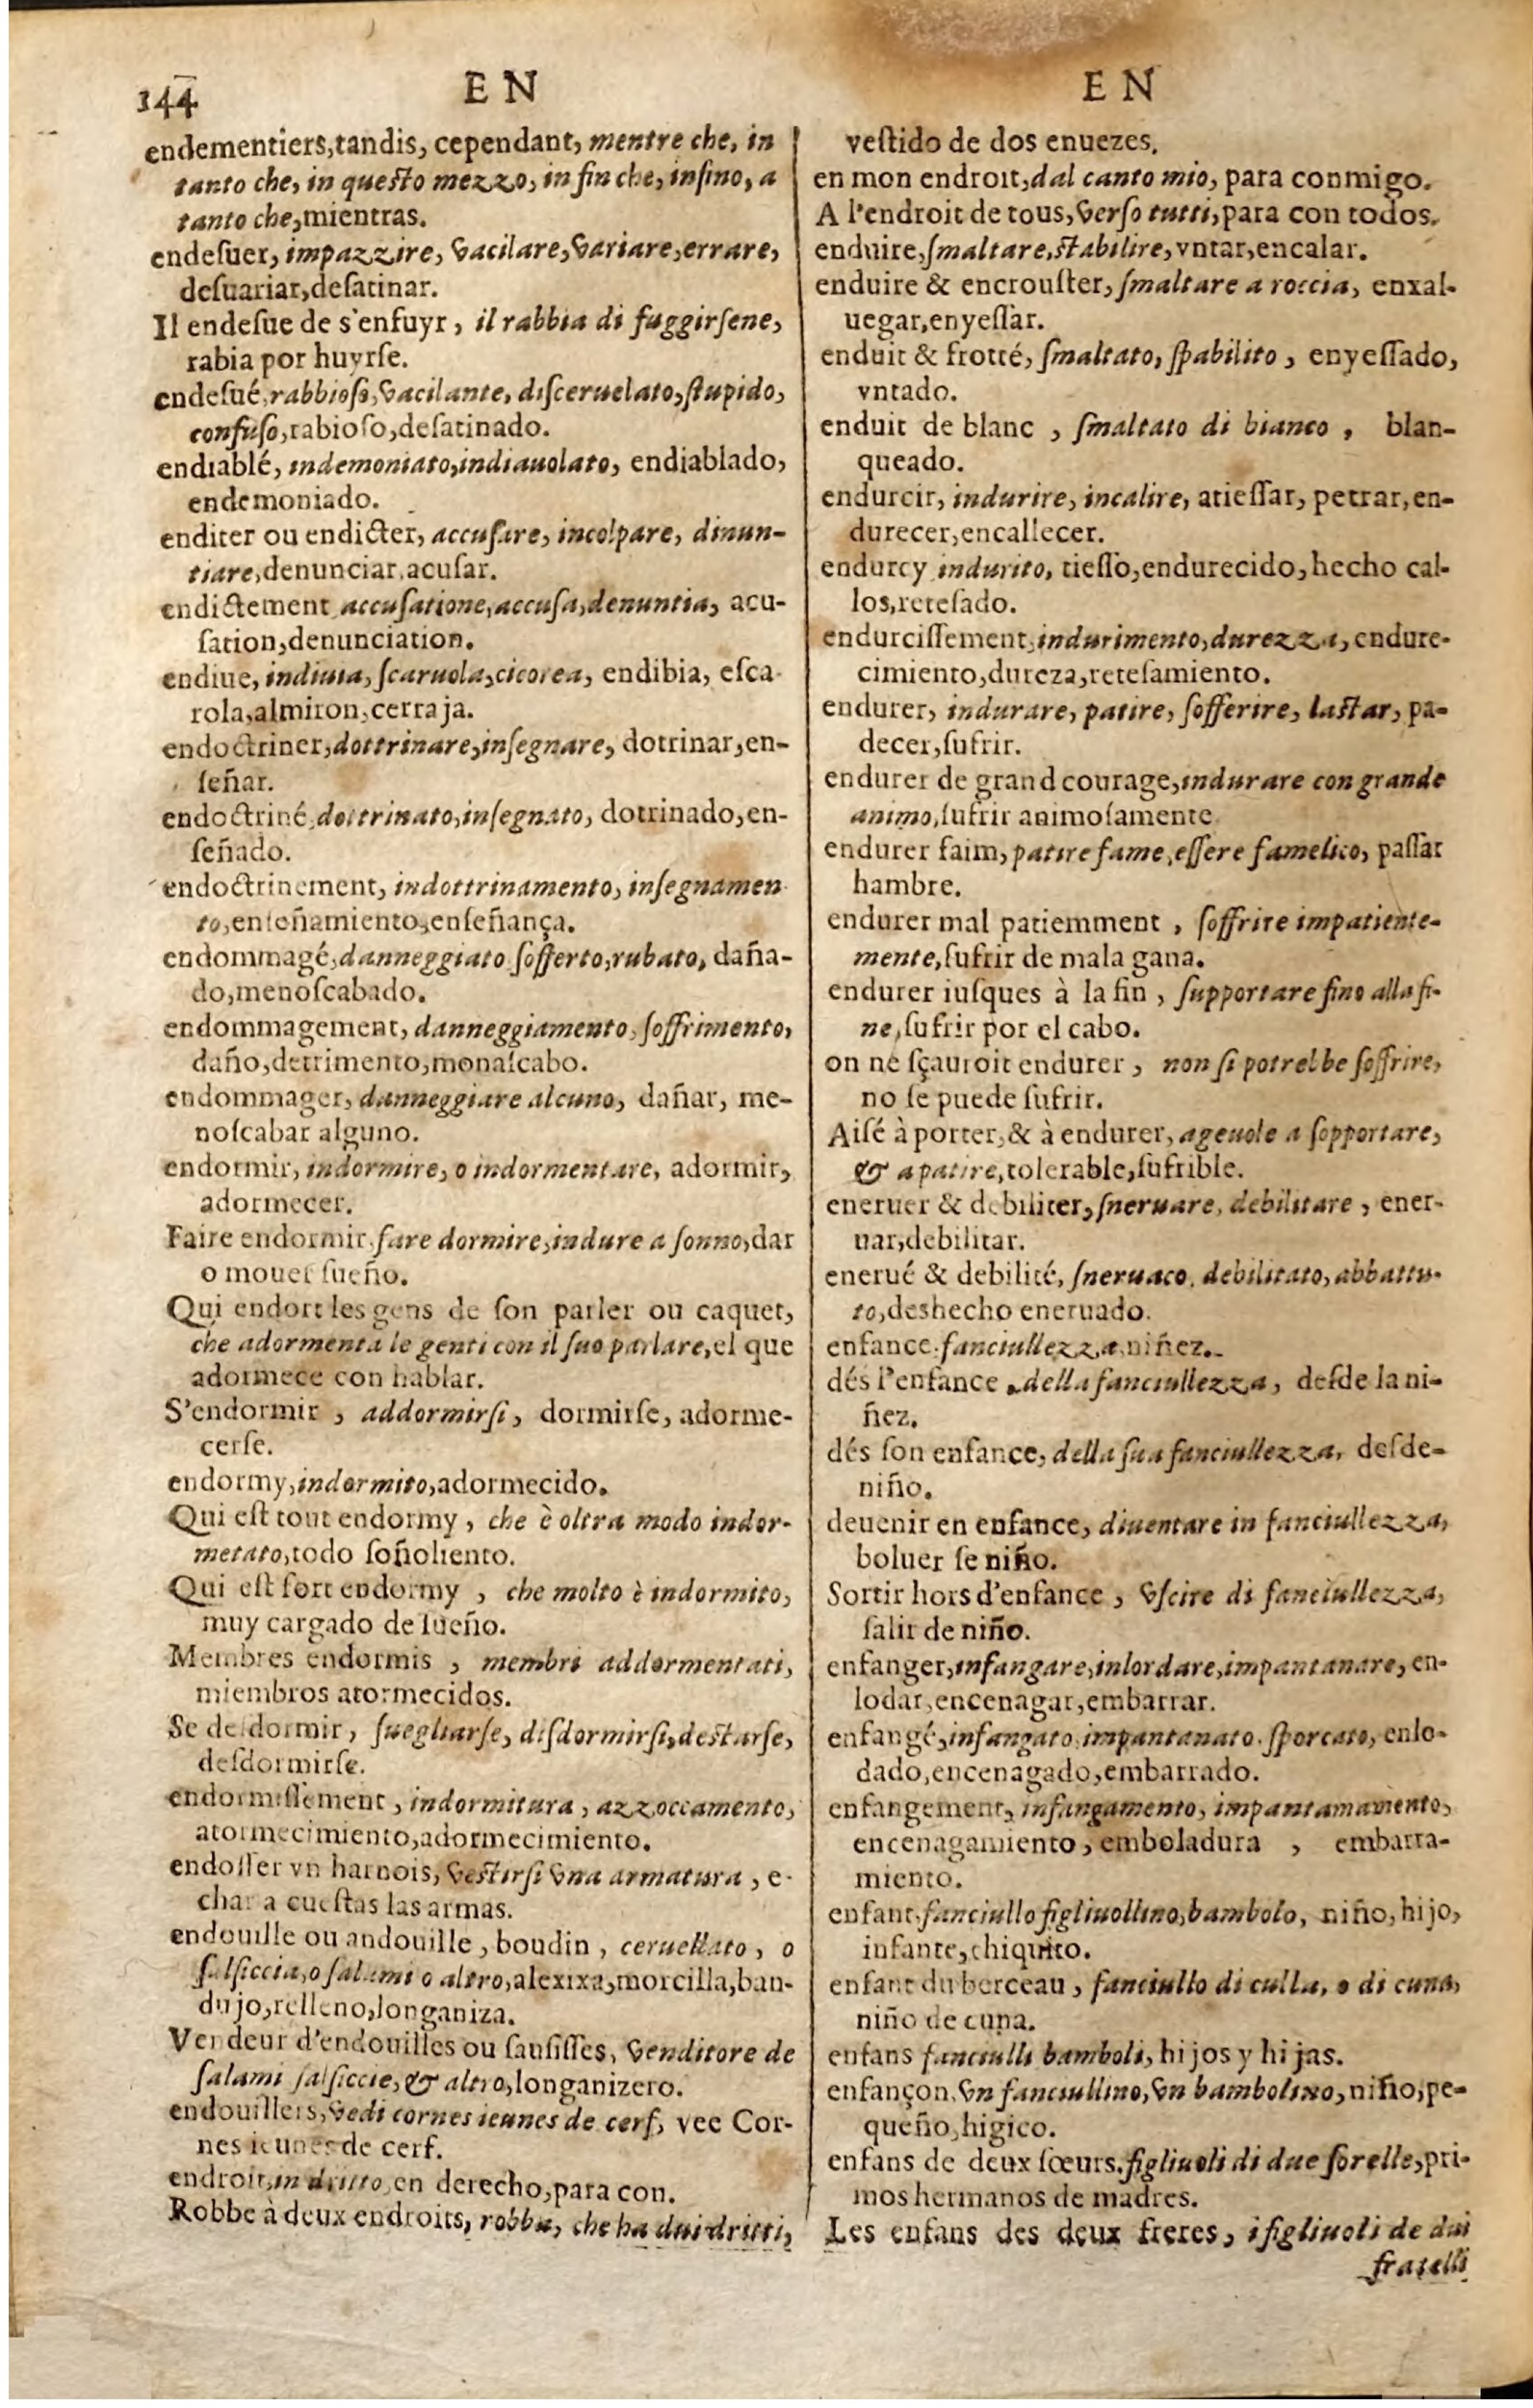 144
EN
EN
endementiers,tandis, cependant, mentre che, in
tanto che, in questo mezzo, in fin che, insino, a
tanto che,mientras.
endesuer, impazzire, vacilare, variare, errare,
desuariar,desatinar.
Il endesue de s'enfuyr, il rabbia di fuggirsene,
rabia por huyrse.
endesué,rabbioso,vacilante, disceruelato,stupido,
confuso,rabioso,desatinado.
endiablé, indemoniato,indiauolato, endiablado,
endemoniado.
enditer ou endicter, accusare, incolpare, dinun-
tiare,denunciar,acusar.
endictement accusatione,accusa,denuntia, acu-
sation,denunciation.
endiue, indiuia, scaruola,cicorea, endibia, esca-
rola,almiron,cerraja.
endoctriner,dottrinare,insegnare, dotrinar,en-
señar.
endoctriné,dottrinato,insegnato, dotrinado,en-
señado.
endoctrinement, indottrinamento, insegnamen-
to,enseñamiento,enseñança.
endommagé,danneggiato sofferto,rubato, daña-
do,menoscabado.
endommagement, danneggiamento, soffrimento,
daño,detrimento,monascabo.
endommager, danneggiare alcuno, dañar, me-
noscabar alguno.
endormir, indormire, o indormentare, adormir,
adormecer.
Faire endormir, fare dormire,indure a sonno,dar
o mouer sueño.
Qui endort les gens de son parler ou caquet,
che adormenta le genti con il suo parlare,el que
adormece con hablar.
S'endormir , addormirsi, dormirse, adorme-
cerse.
endormy,indormito,adormecido.
Qui est tout endormy , che è oltra modo indor-
metato,todo soñoliento.
Qui est fort endormy , che molto è indormito,
muy cargado de sueño.
Membres endormis , membri addormentati,
miembros atormecidos.
Se desdormir, suegliarse, disdormirsi,destarse,
desdormirse.
endormissement , indormitura , azzoccamento,
atormecimiento,adormecimiento.
endosser vn harnois, vestirsi vna armatura , e-
char a cuestas las armas.
endouille ou andouille , boudin , ceruellato , o
salsiccia,o salami o altro,alexixa,morcilla,ban-
dujo,relleno,longaniza.
Vendeur d'endouilles ou sausisses, venditore de
salami salsiccie, & altro,longanizero.
endouillers,vedi cornes ieunes de cerf, vee Cor-
nes ieunes de cerf.
endroit,in dritto,en derecho,para con.
Robbe à deux endroits, robba, che ha dui dritti,
vestido de dos enuezes.
en mon endroit,dal canto mio, para conmigo.
A l'endroit de tous,verso tutti,para con todos.
enduire,smaltare,stabilire,vntar,encalar.
enduire & encrouster, smaltare a roccia, enxal-
uegar,enyessar.
enduit & frotté, smaltato, spabilito , enyessado,
vntado.
enduit de blanc , smaltato di bianco , blan-
queado.
endurcir, indurire, incalire, atiessar, petrar,en-
durecer,encallecer.
endurcy indurito, tiesso,endurecido,hecho cal-
los,retesado.
endurcissement,indurimento,durezza, endure-
cimiento,dureza,retesamiento.
endurer, indurare, patire, sofferire, lastar, pa-
decer,sufrir.
endurer de grand courage,indurare con grande
animo,sufrir animosamente
endurer faim, patire fame,essere famelico, passar
hambre.
endurer mal patiemment , soffrire impatiente-
mente,sufrir de mala gana.
endurer iusques à la fin , supportare fino alla fi-
ne,sufrir por el cabo.
on ne sçauroit endurer , non si potrebbe soffrire,
no se puede sufrir.
Aisé à porter,& à endurer, ageuole a sopportare,
& a patire,tolerable,sufrible.
eneruer & debiliter, sneruare, debilitare , ener-
uar,debilitar.
enerué & debilité, sneruaco, debilitato, abbattu-
to,deshecho eneruado.
enfance.fanciullezza,niñez.
dés l'enfance .della fanciullezza, desde la ni-
ñez.
dés son enfance, della sua fanciullezza, desde-
niño.
deuenir en enfance, diuentare in fanciullezza,
boluer se niño.
Sortir hors d'enfance , vscire di fanciullezza,
salir de niño.
enfanger,infangare,inlordare,impantanare, en-
lodar,encenagar,embarrar.
enfangé,infangato,impantanato.sporcato, enlo-
dado,encenagado,embarrado.
enfangement, infangamento, impantamamento,
encenagamiento , emboladura , embarra-
miento.
enfant,fanciullo figliuollino,bambolo, niño,hijo,
infante,chiquito.
enfant du berceau , fanciullo di culla, o di cuna,
niño de cuna.
enfans fanciulli bamboli, hijos y hijas.
enfançon,vn fanciullino,vn bambolino,niño,pe-
queño,higico.
enfans de deux sœurs.figliuoli di due sorelle,pri-
mos hermanos de madres.
Les enfans des deux freres, i figliuoli de dui
fratelli